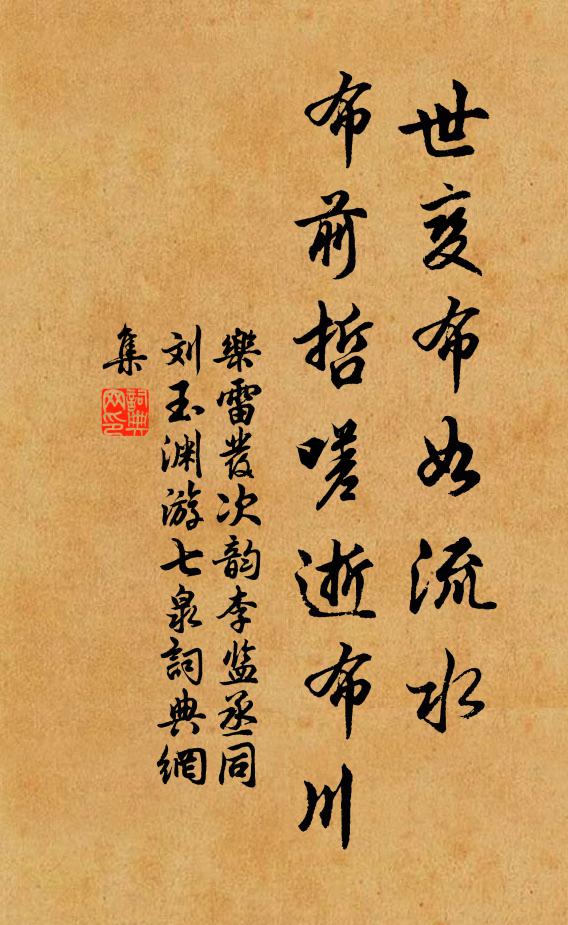 世变布如流水
布前哲嗟逝布川
乐雷发次韵李监丞同
刘玉渊游七泉词典网
集
词典网印